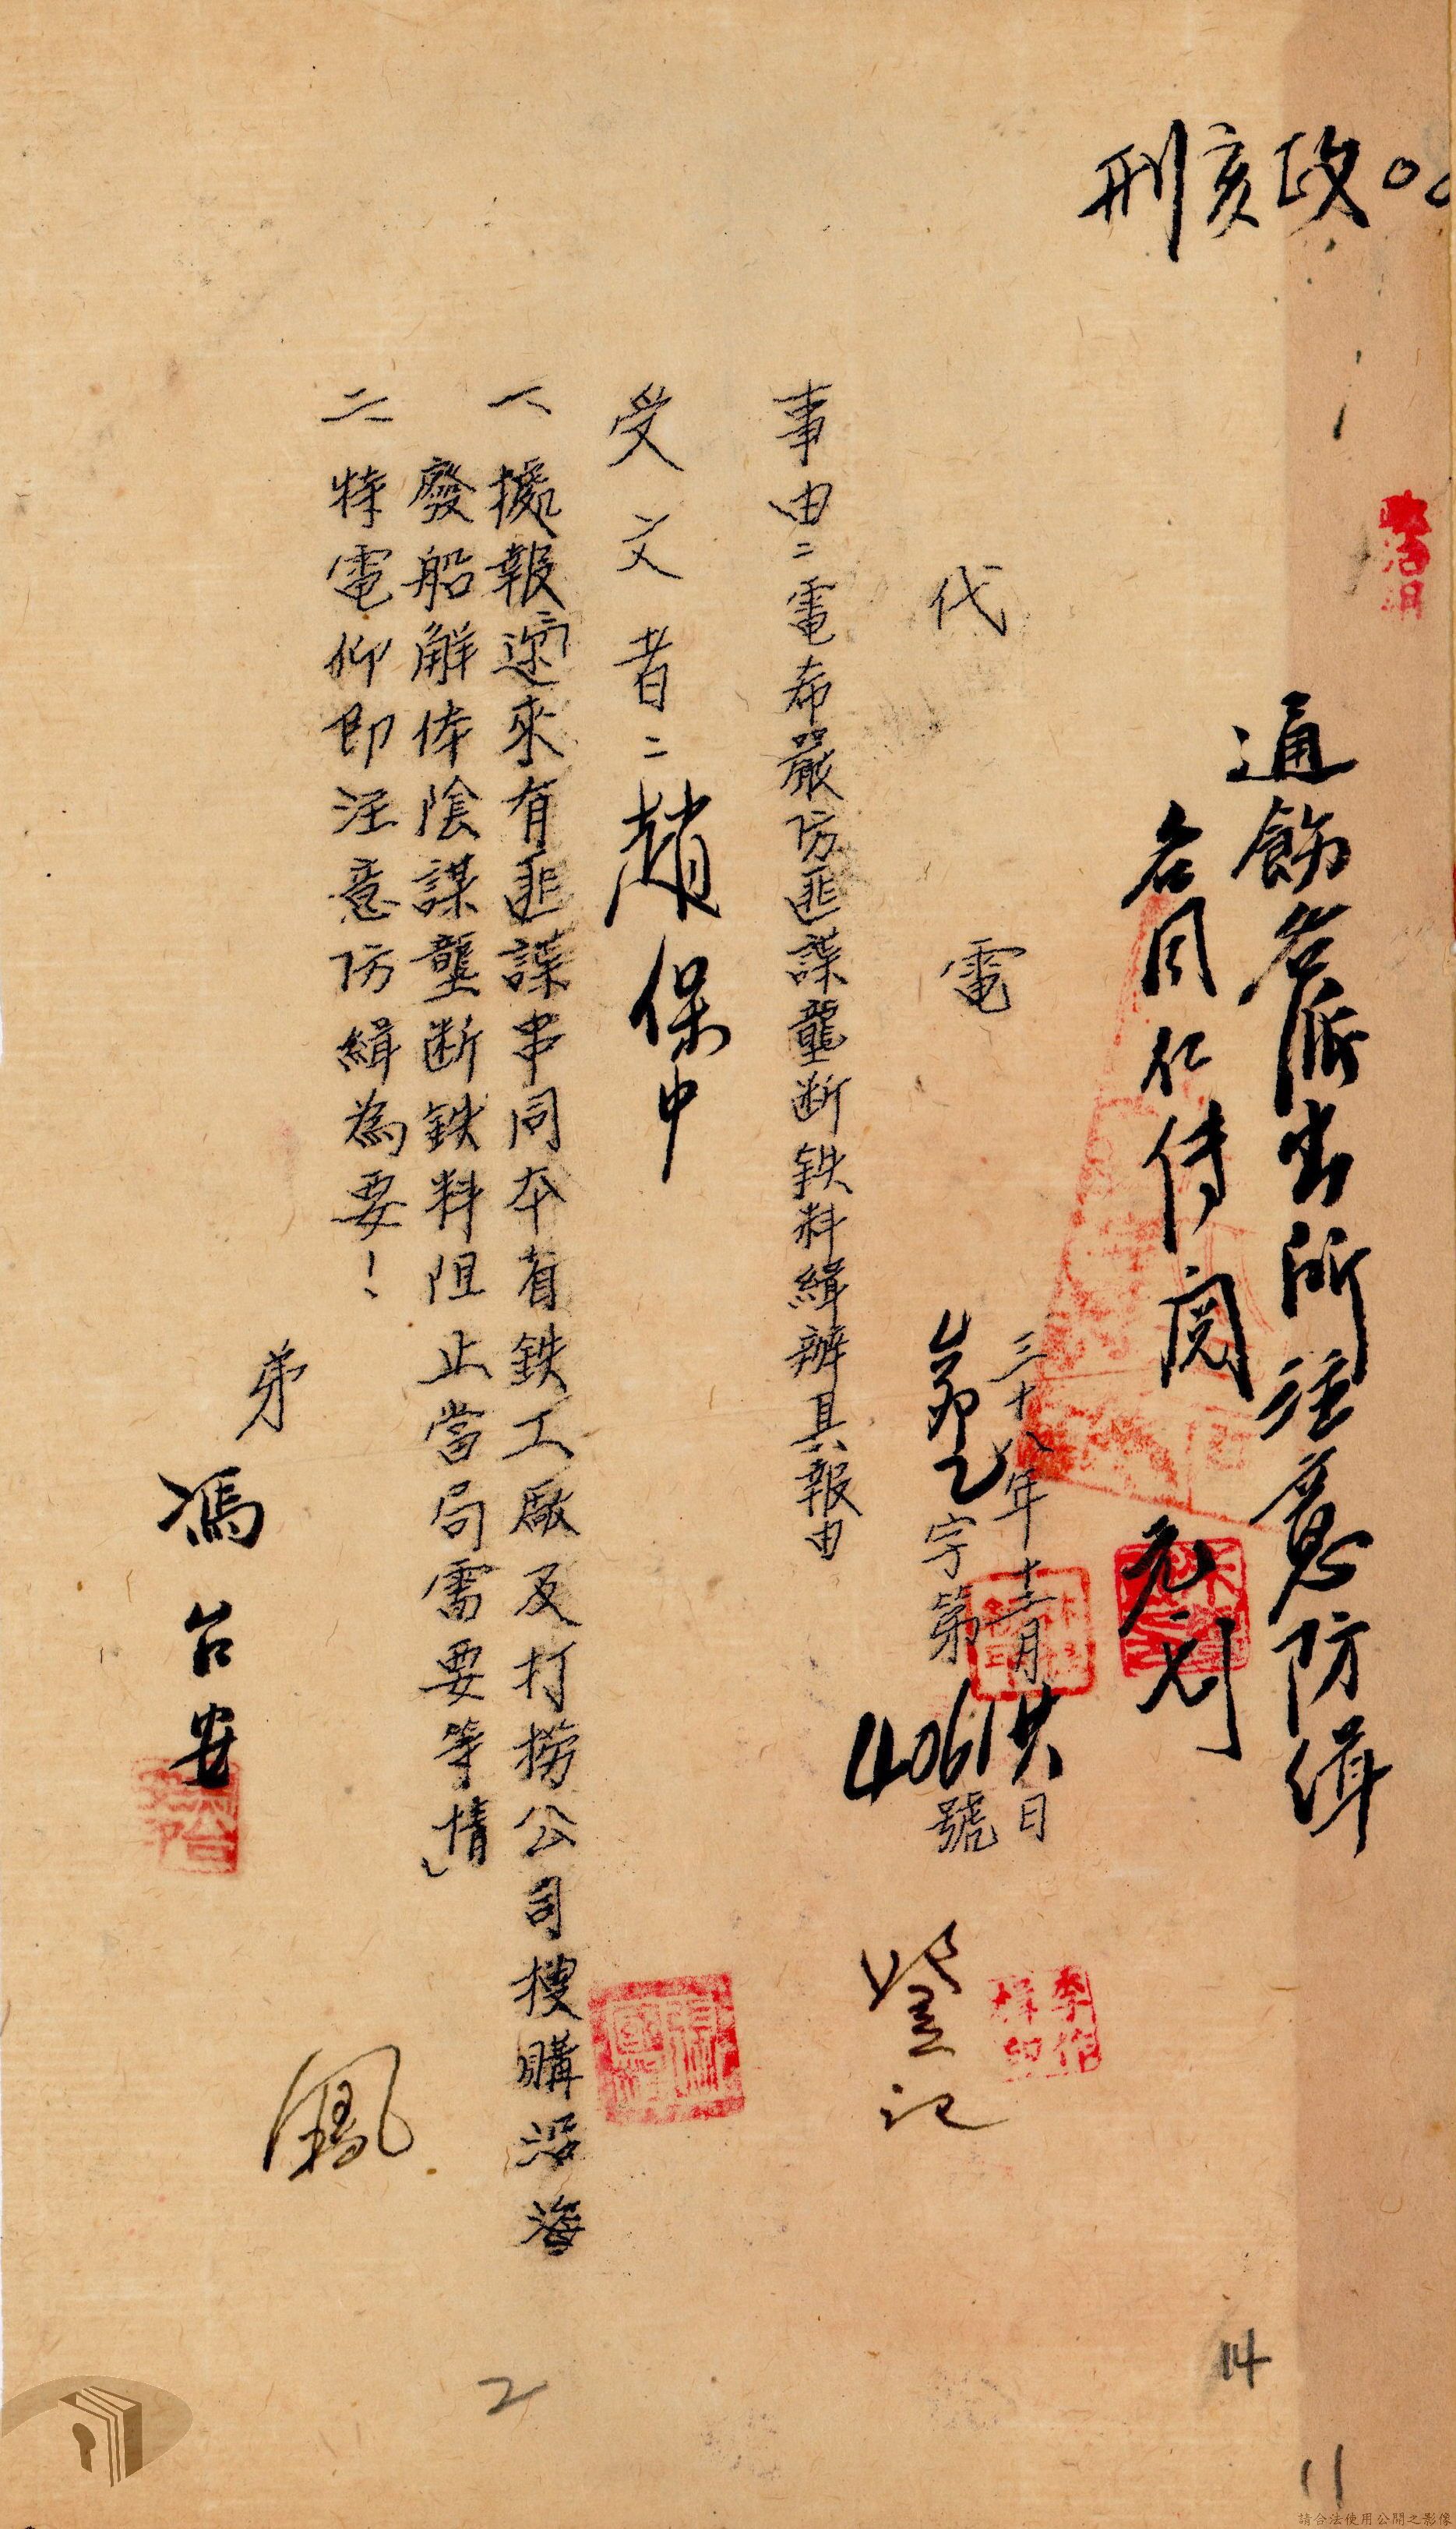 政亥刑
通飭各派出所注意防緝
各同仁傳閱
代電
三十八年十二月廿日
字第4061號
登記
事由：電希嚴防匪諜壟断鉄料緝辦具報由
受文者：趙保中
一、據報「邇來有匪諜串同本省鉄工廠及打撈公司搜購沿海
廢船解体陰謀壟断鉄料阻止當局需要等情」
二、特電仰即注意防緝為要！
弟
馮台安
鳳
李作
2
14
11
請合法使用公開之影像